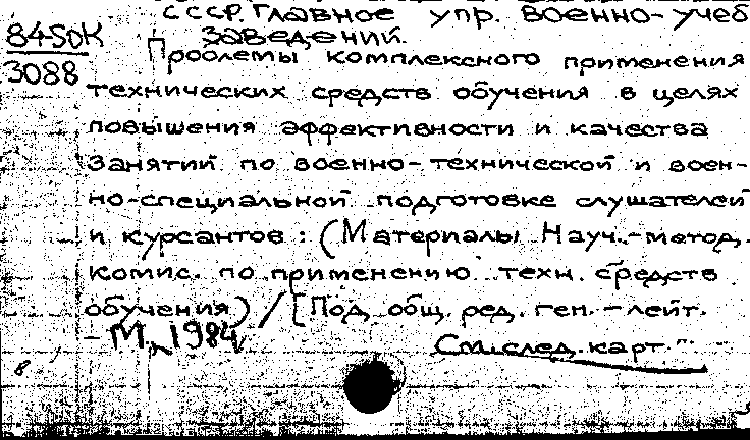 СССР. Главное упр. военно-учеб
заведений.
84-5ДК
3088
Проблемы комплексного применения
технических средств обучения в целях
повышения эффективности и качества
занятий по военно-технической и воен-
но-специальной подготовке слушателей
и курсантов: (Материалы Науч.-метод.
комис. по применению техн. средств
обучения) / [Под общ. ред. ген.-лейт.
- М., 1984,
См. след. карт.
8